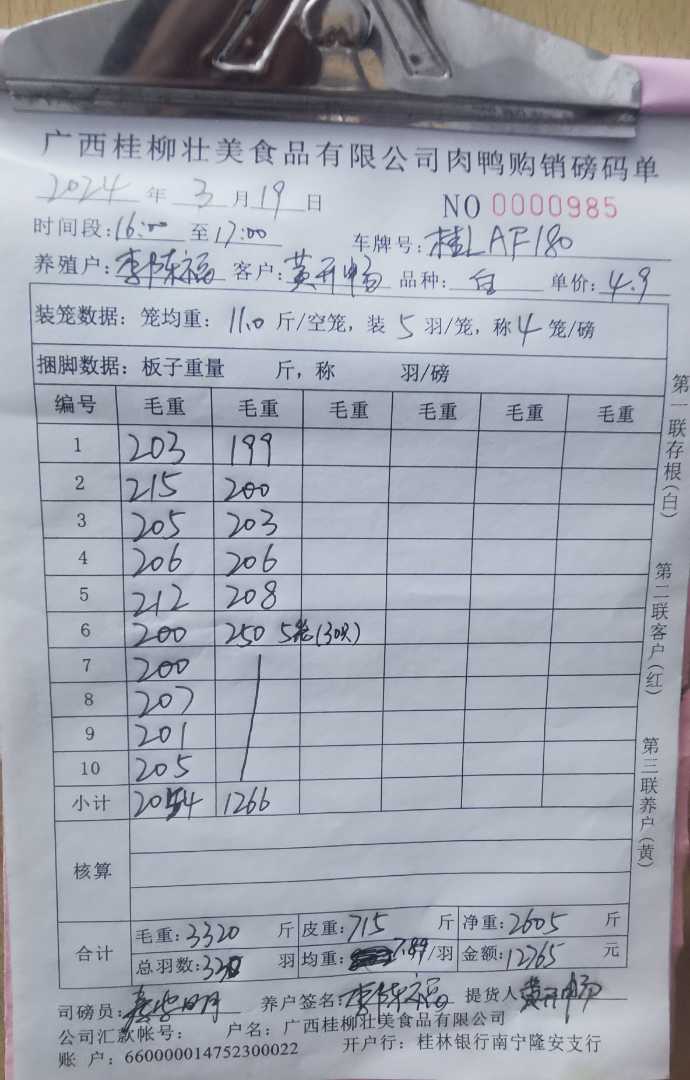 广西桂柳壮美食品有限公司肉鸭购销磅码单
2024 年 3 月 19 日 NO 0000985
时间段:16:00 至 17:00 车牌号:桂LAF180
养殖户:李陈福 客户:黄开畅 品种:白 单价:4.9
装笼数据:笼均重:11.0 斤/空笼,装 5 羽/笼,称 4 笼/磅
捆脚数据:板子重量 斤,称 羽/磅
编号 毛重 毛重 毛重 毛重 毛重 毛重
1 203 199
2 215 200
3 205 203
4 206 206
5 212 208
6 200 250 5笼(30只)
7 200
8 207
9 201
10 205
小计 2054 1266
核算
合计 毛重:3320 斤 皮重:715 斤 净重:2605 斤
总羽数:330 羽 均重:7.89/羽 金额:12765 元
司磅员: 养户签名:李陈福 提货人黄开畅
公司汇款帐号: 户名:广西桂柳壮美食品有限公司
账 户:660000014752300022 开户行:桂林银行南宁隆安支行
第一联存根(白)
第二联客户(红)
第三联养户(黄)